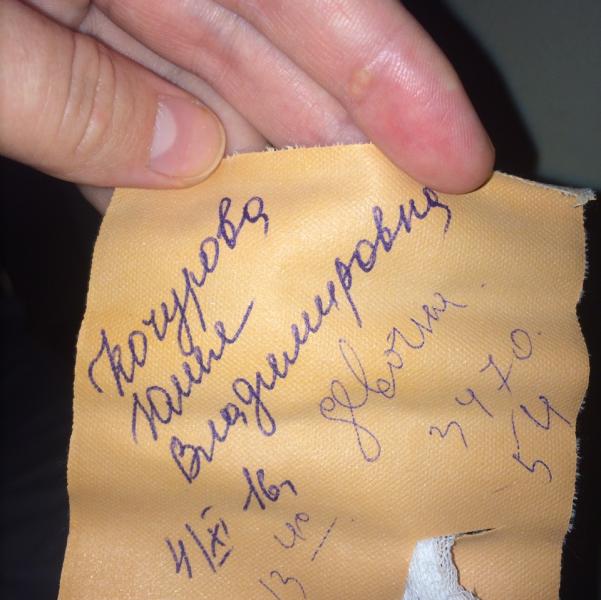 Кочурова
Юлия
Владимировна
девочка
3470.
54
4/XI 16г
13 40